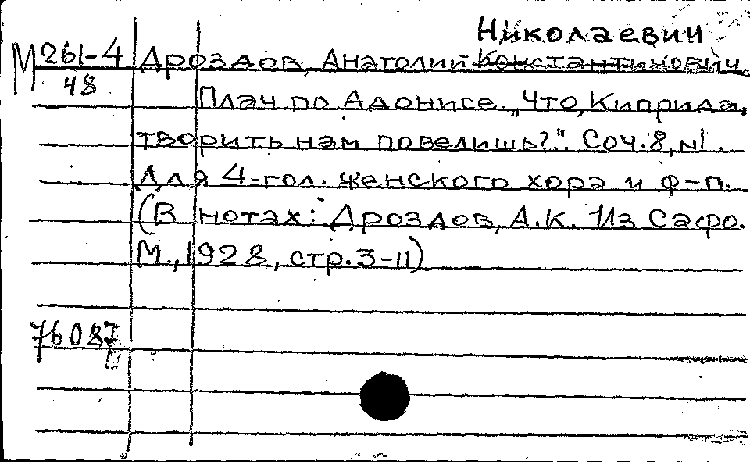 Николаевич
М 261-4 Дроздов, Анатолий Константинович.
48
Плач по Адонисе. „Что, Киприда,
творить нам повелишь?". Соч. 8, №1.
Для 4-гол. женского хора и ф-п.
(В нотах: Дроздов, А.К. Из Сафо.
М., 1928, стр. 3-11)